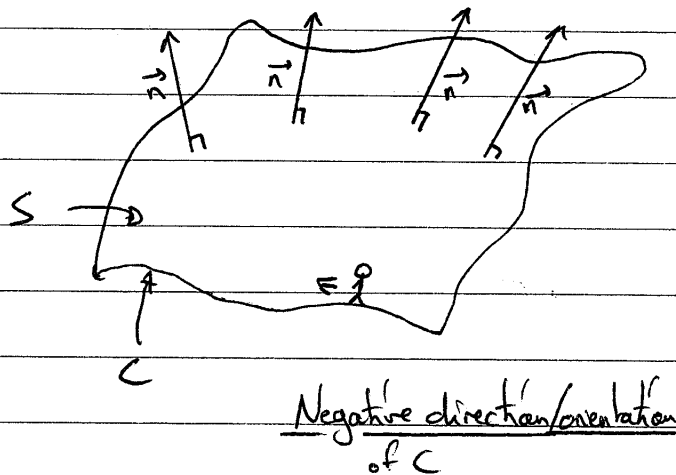 n n n n
S
C
Negative direction/orientation
of C